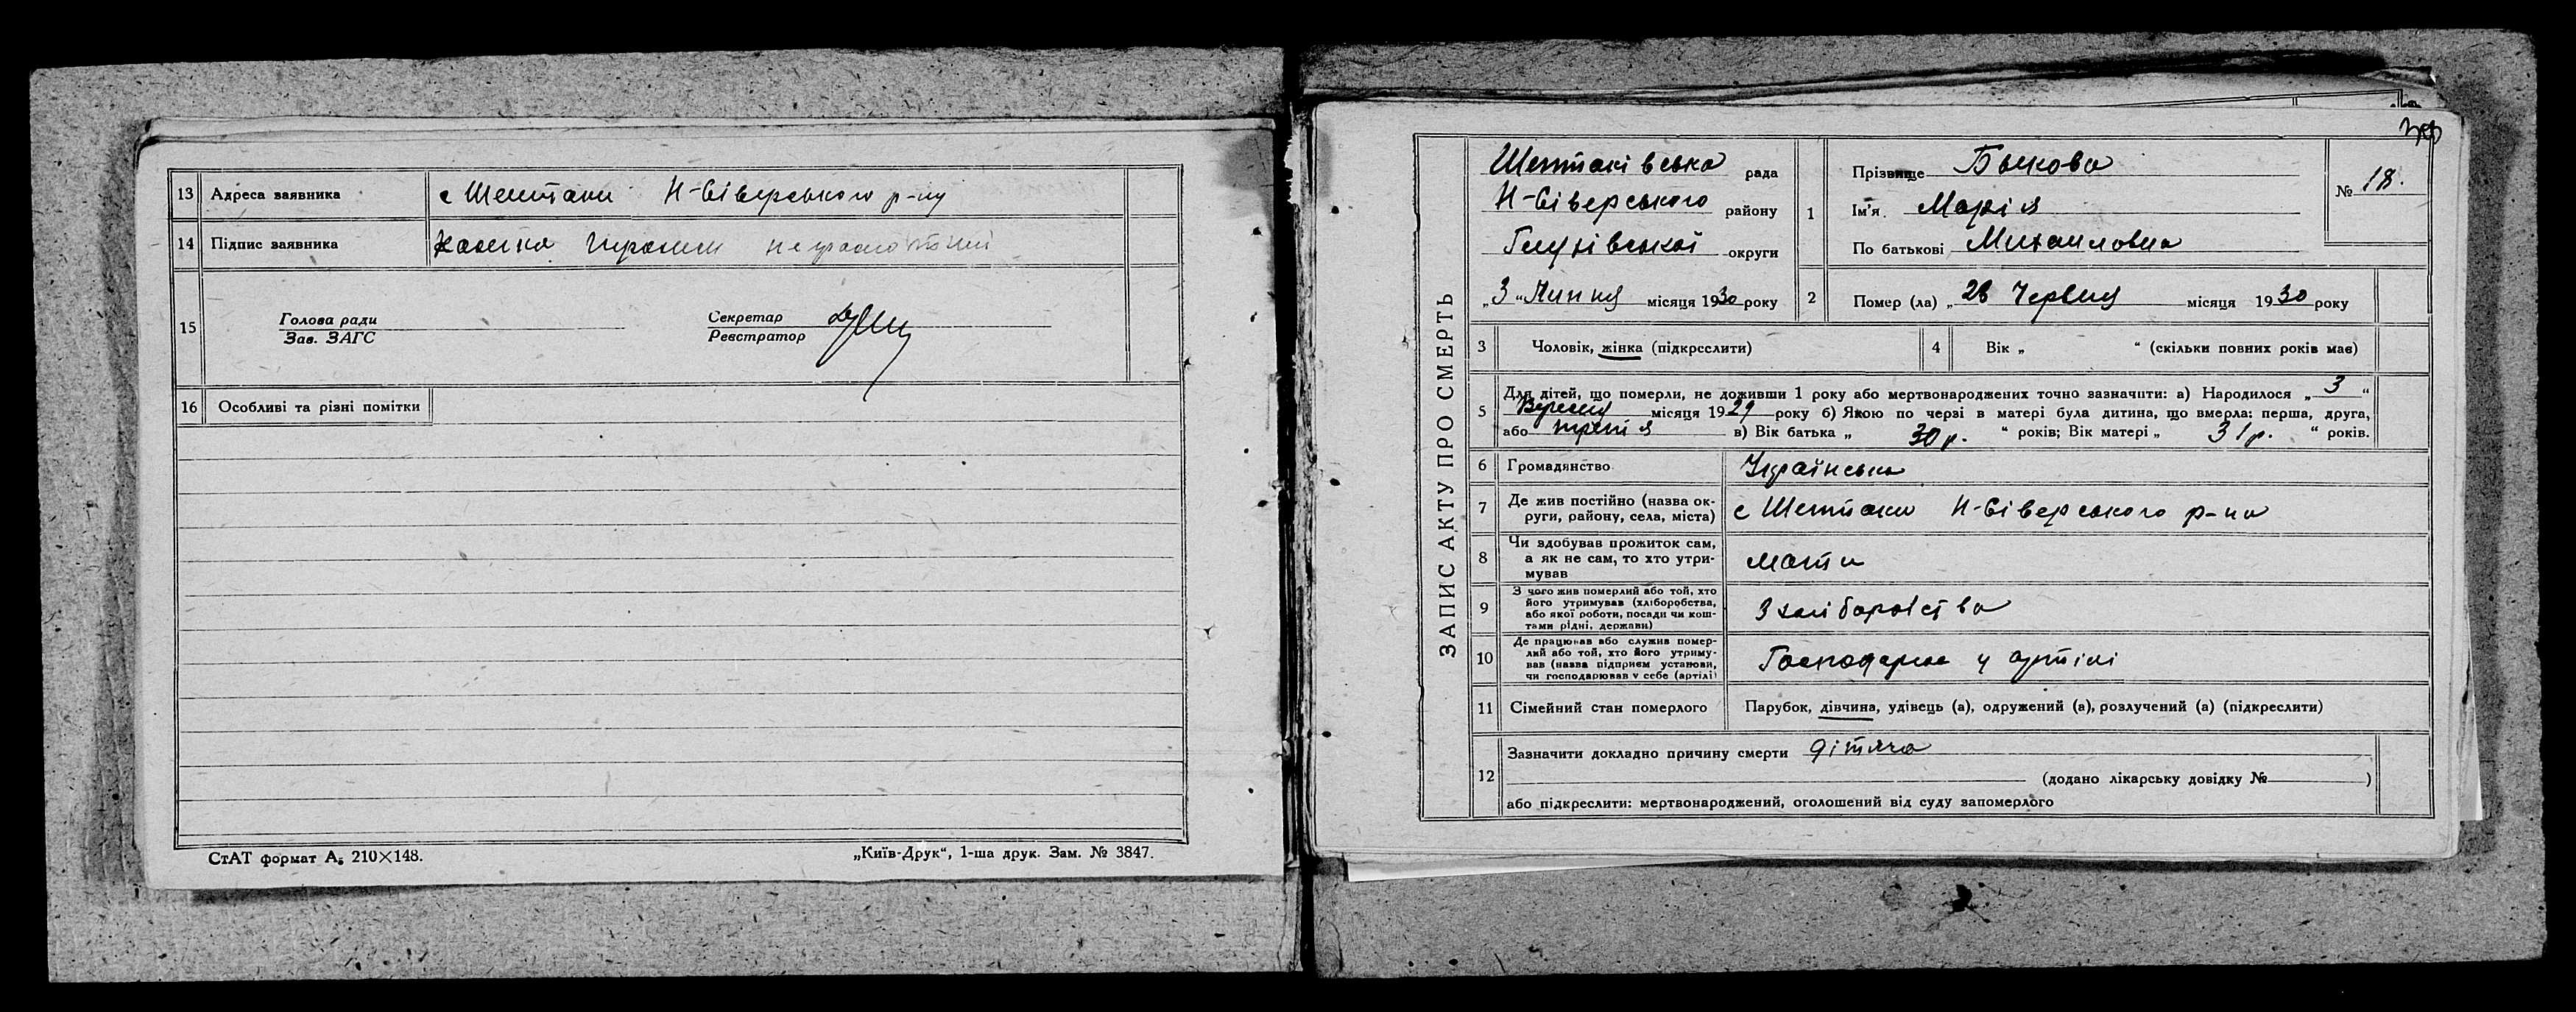 13 Адреса заявника с Шептаки Н-Сіверського р-ну
14 Підпис заявника неграмотний
15 Голова ради
Зав. ЗАГС
Секретар
Реєстратор
16 Особливі та різні помітки
СтАТ формат А₅ 210×148.
„Київ-Друк“, 1-ша друк. Зам. № 3847.
ЗАПИС АКТУ ПРО СМЕРТЬ
Шептаківська рада
Н-Сіверського району
Глухівської округи
„3“ Липня місяця 1930 року
1 Прізвище Быкова
Ім'я Марія
По батькові Михаиловна
№ 18.
2 Помер (ла) „28 Червня місяця 1930 року
3 Чоловік, жінка (підкреслити)
4 Вік „ “ (скільки повних років мав)
5 Для дітей, що померли, не доживши 1 року або мертвонароджених точно зазначити: а) Народилося „3“
Вересня місяця 1929 року б) Якою по черзі в матері була дитина, що вмерла: перша, друга,
або третя в) Вік батька „ 30 р. “ років; Вік матері „ 31 р. “ років.
6 Громадянство Українська
7 Де жив постійно (назва ок-
руги, району, села, міста) с Шептаки Н-Сіверського р-на
8 Чи здобував прожиток сам,
а як не сам, то хто утри-
мував мати
9 З чого жив померлий або той, хто
його утримував (хліборобства,
або якої роботи, посади чи кош-
тами рідні, держави) З хліборобства
10 Де працював або служив помер-
лий або той, хто його утриму-
вав (назва підприєм установи,
чи господарював у себе (артілі) Господарює у артілі
11 Сімейний стан померлого Парубок, дівчина, удівець (а), одружений (а), розлучений (а) (підкреслити)
12 Зазначити докладно причину смерти дітяча
(додано лікарську довідку № )
або підкреслити: мертвонароджений, оголошений від суду запомерлого